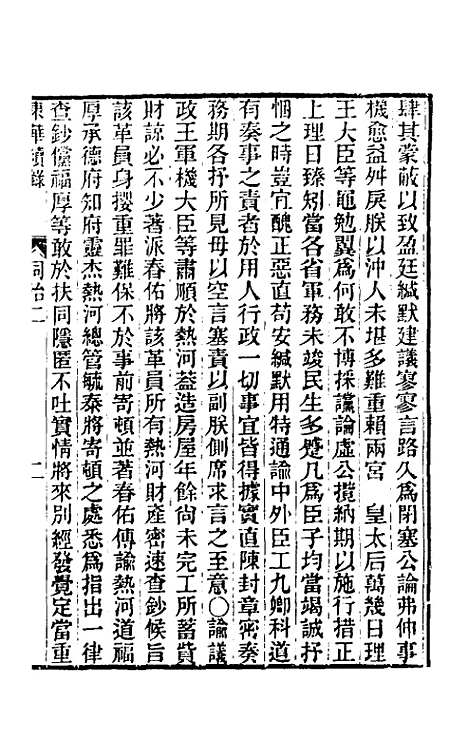 肆其蒙蔽以致盈廷緘默建議寥寥言路久爲閉塞公論弗伸事
機愈益舛戾朕以沖人未堪多難重賴兩宮　皇太后萬幾日理
王大臣等黽勉翼爲何敢不博採讜論虛公攬納期以施行措正
上理日臻矧當各省軍務未竣民生多蹙凡爲臣子均當竭誠抒
悃之時豈宜醜正惡直苟安緘默用特通諭中外臣工九卿科道
有奏事之責者於用人行政一切事宜皆得據實直陳封章密奏
務期各抒所見毋以空言塞責以副朕側席求言之至意○諭議
政王軍機大臣等肅順於熱河葢造房屋年餘尚未完工所蓄貲
財諒必不少著派春佑將該革員所有熱河財產密速查鈔候旨
該革員身攖重罪難保不於事前寄頓並著春佑傳諭熱河道福
厚承德府知府靈杰熱河總管毓泰將寄頓之處悉爲指出一律
查鈔儻福厚等敢於扶同隱匿不吐實情將來別經發覺定當重
東華續錄　同治二　二